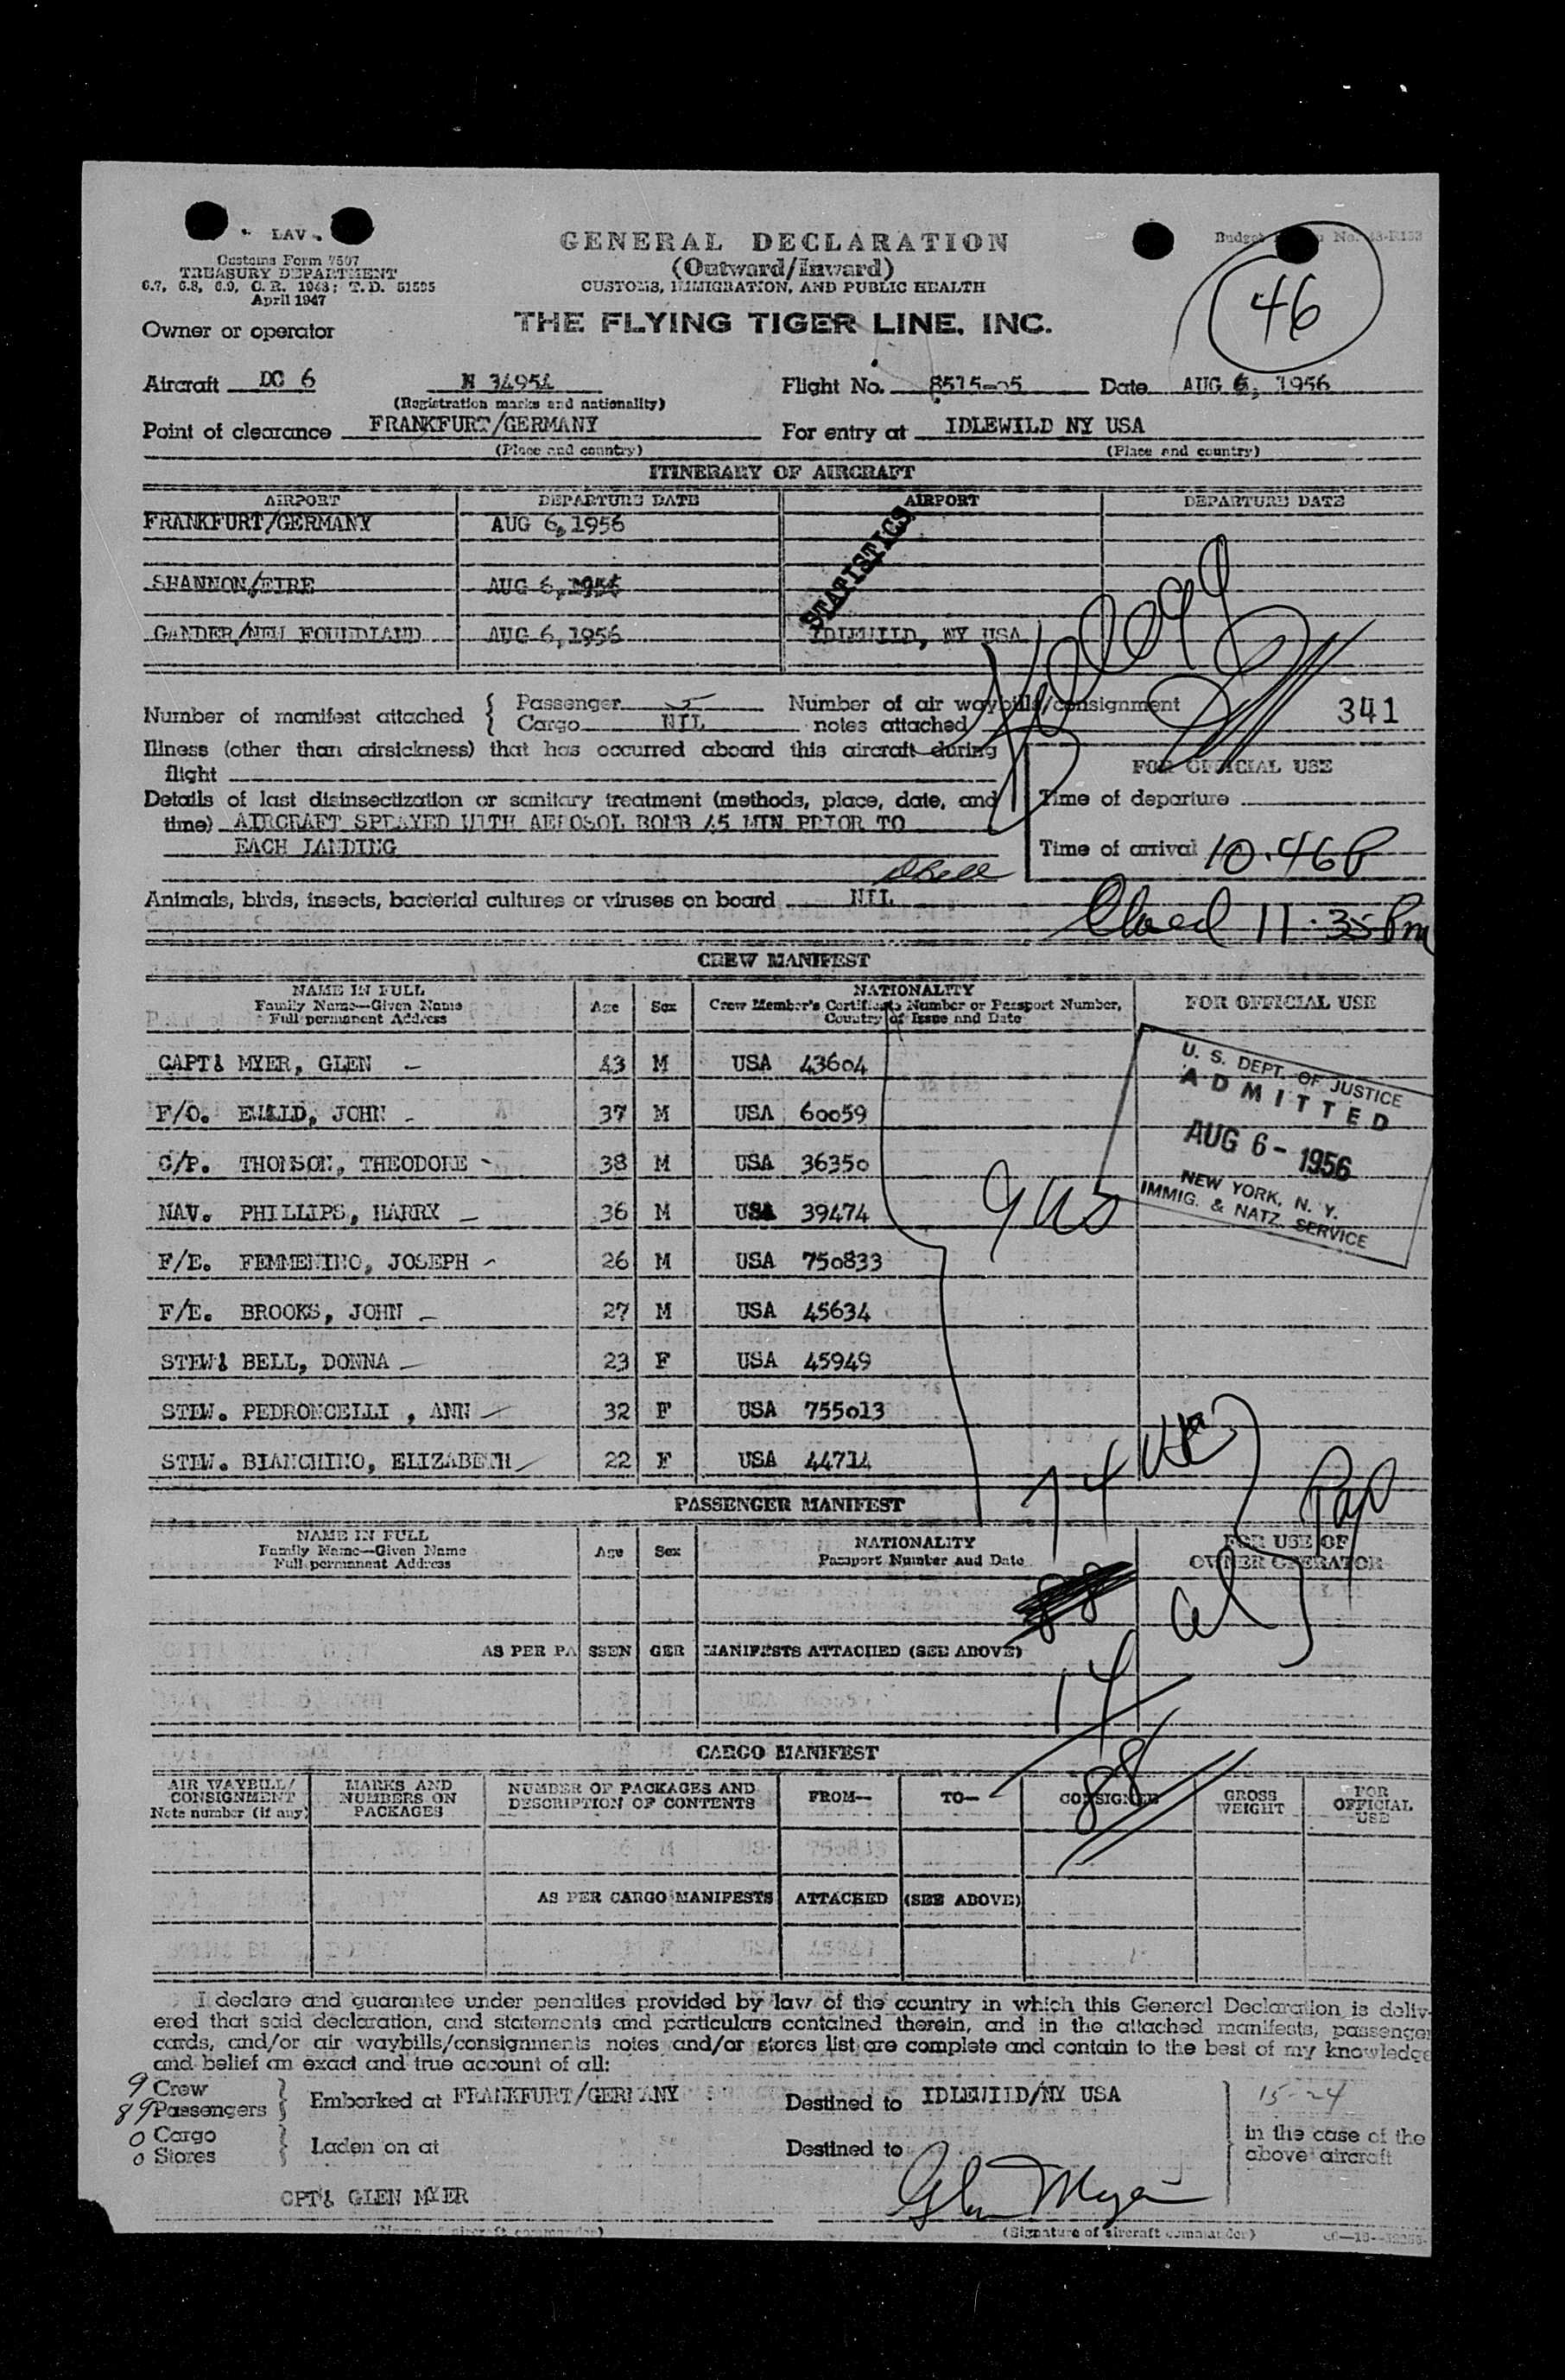 LAV.
Customs Form 7507
TREASURY DEPARTMENT
6.7, 6.8, 6.9, C.R. 1943; T.D. 51595
April 1947
GENERAL DECLARATION
(Outward/Inward)
CUSTOMS, IMMIGRATION, AND PUBLIC HEALTH
Budget No.
46
Owner or operator
THE FLYING TIGER LINE, INC.
Aircraft DC 6 N 34954 Flight No. 8515-05 Date AUG 6, 1956
(Registration marks and nationality)
Point of clearance FRANKFURT/GERMANY For entry at IDLEWILD NY USA
(Place and country) (Place and country)
ITINERARY OF AIRCRAFT
AIRPORT DEPARTURE DATE AIRPORT DEPARTURE DATE
FRANKFURT/GERMANY AUG 6, 1956
STATISTICS
SHANNON/EIRE AUG 6, 1956
GANDER/NEW FOUNDLAND AUG 6, 1956 IDLEWILD, NY USA
Number of manifest attached { Passenger 5 Number of air waybills/consignment 341
Cargo NIL notes attached
Illness (other than airsickness) that has occurred aboard this aircraft during
flight
FOR OFFICIAL USE
Details of last disinsectization or sanitary treatment (methods, place, date, and
Time of departure
time) AIRCRAFT SPRAYED WITH AEROSOL BOMB 45 MIN PRIOR TO
EACH LANDING
Time of arrival 10.46P
DBell
Animals, birds, insects, bacterial cultures or viruses on board NIL
Closed 11.35 Pm
CREW MANIFEST
NAME IN FULL
Family Name—Given Name
Full permanent Address
Age Sex
NATIONALITY
Crew Member's Certificate Number or Passport Number,
Country of Issue and Date
FOR OFFICIAL USE
CAPT& MYER, GLEN 43 M USA 43604
F/O. EWALD, JOHN 37 M USA 60059
C/P. THOMSON, THEODORE 38 M USA 36350
NAV. PHILLIPS, HARRY 36 M USA 39474
F/E. FEMMENINO, JOSEPH 26 M USA 750833
F/E. BROOKS, JOHN 27 M USA 45634
STEW& BELL, DONNA 23 F USA 45949
STEW. PEDRONCELLI , ANN 32 F USA 755013
STEW. BIANCHINO, ELIZABETH 22 F USA 44714
U. S. DEPT. OF JUSTICE
ADMITTED
AUG 6 - 1956
NEW YORK, N. Y.
IMMIG. & NATZ. SERVICE
PASSENGER MANIFEST
NAME IN FULL
Family Name—Given Name
Full permanent Address
Age Sex
NATIONALITY
Passport Number and Date
FOR USE OF
OWNER OPERATOR
74
88
AS PER PASSENGER MANIFESTS ATTACHED (SEE ABOVE)
14
88
CARGO MANIFEST
AIR WAYBILL/
CONSIGNMENT
Note number (if any)
MARKS AND
NUMBERS ON
PACKAGES
NUMBER OF PACKAGES AND
DESCRIPTION OF CONTENTS
FROM—
TO—
CONSIGNEE
GROSS
WEIGHT
FOR
OFFICIAL
USE
AS PER CARGO MANIFESTS ATTACHED (SEE ABOVE)
I declare and guarantee under penalties provided by law of the country in which this General Declaration is deliv-
ered that said declaration, and statements and particulars contained therein, and in the attached manifests, passenger
cards, and/or air waybills/consignments notes and/or stores list are complete and contain to the best of my knowledge
and belief an exact and true account of all:
9 Crew
89 Passengers } Embarked at FRANKFURT/GERMANY Destined to IDLEWILD/NY USA 15-24
0 Cargo
0 Stores } Laden on at Destined to
in the case of the
above aircraft
CPT& GLEN MYER
Glen Myer
(Name of aircraft commander) (Signature of aircraft commander)